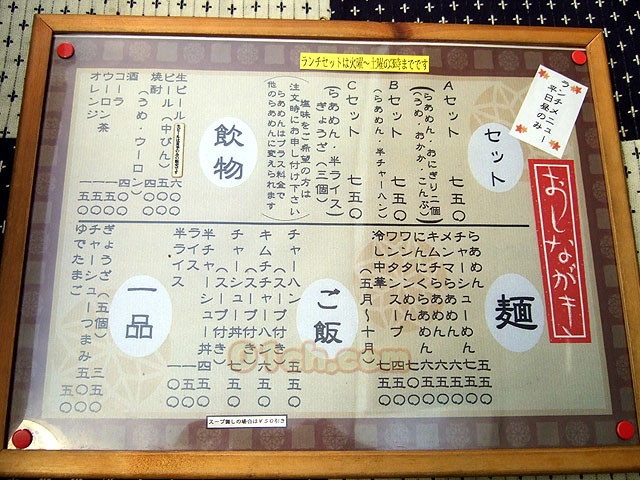 ランチセットは火曜～土曜の3時までです
ランチメニュー
平日昼のみ
おしながき
セット
Aセット 七五〇
（らあめん・おにぎり二個
（うめ、おかか、こんぶ）
Bセット 七五〇
（らあめん・半チャーハン）
Cセット 七五〇
（らあめん・半ライス）
ぎょうざ（三個）
塩味をご希望の方は
（注文時にお申し付け下さい）
らあめんはプラス料金で
他のらあめんに変えられます
飲物
生ビール 六〇〇
ビール（中びん） 五五〇
焼酎（うめ・ウーロン） 四〇〇
酒 四〇〇
コーラ 一五〇
ウーロン茶 一五〇
オレンジ 一五〇
麺
らあめん 五五〇
チャーシューめん 七五〇
メンマらあめん 六五〇
キムチらあめん 六五〇
にんにくらあめん 六五〇
ワンタンめん 七〇〇
ワンタンスープ 四五〇
冷し中華 七五〇
（五月～十月）
ご飯
チャーハン 五五〇
（スープ付き）
キムチチャーハン 六五〇
（スープ付き）
チャーシュー丼 七五〇
（スープ付き）
半チャーシュー丼 四五〇
ライス 一五〇
半ライス 一〇〇
一品
ぎょうざ（五個） 三五〇
チャーシューつまみ 五五〇
ゆでたまご 五〇
スープ無しの場合は￥50引き
01ch.com